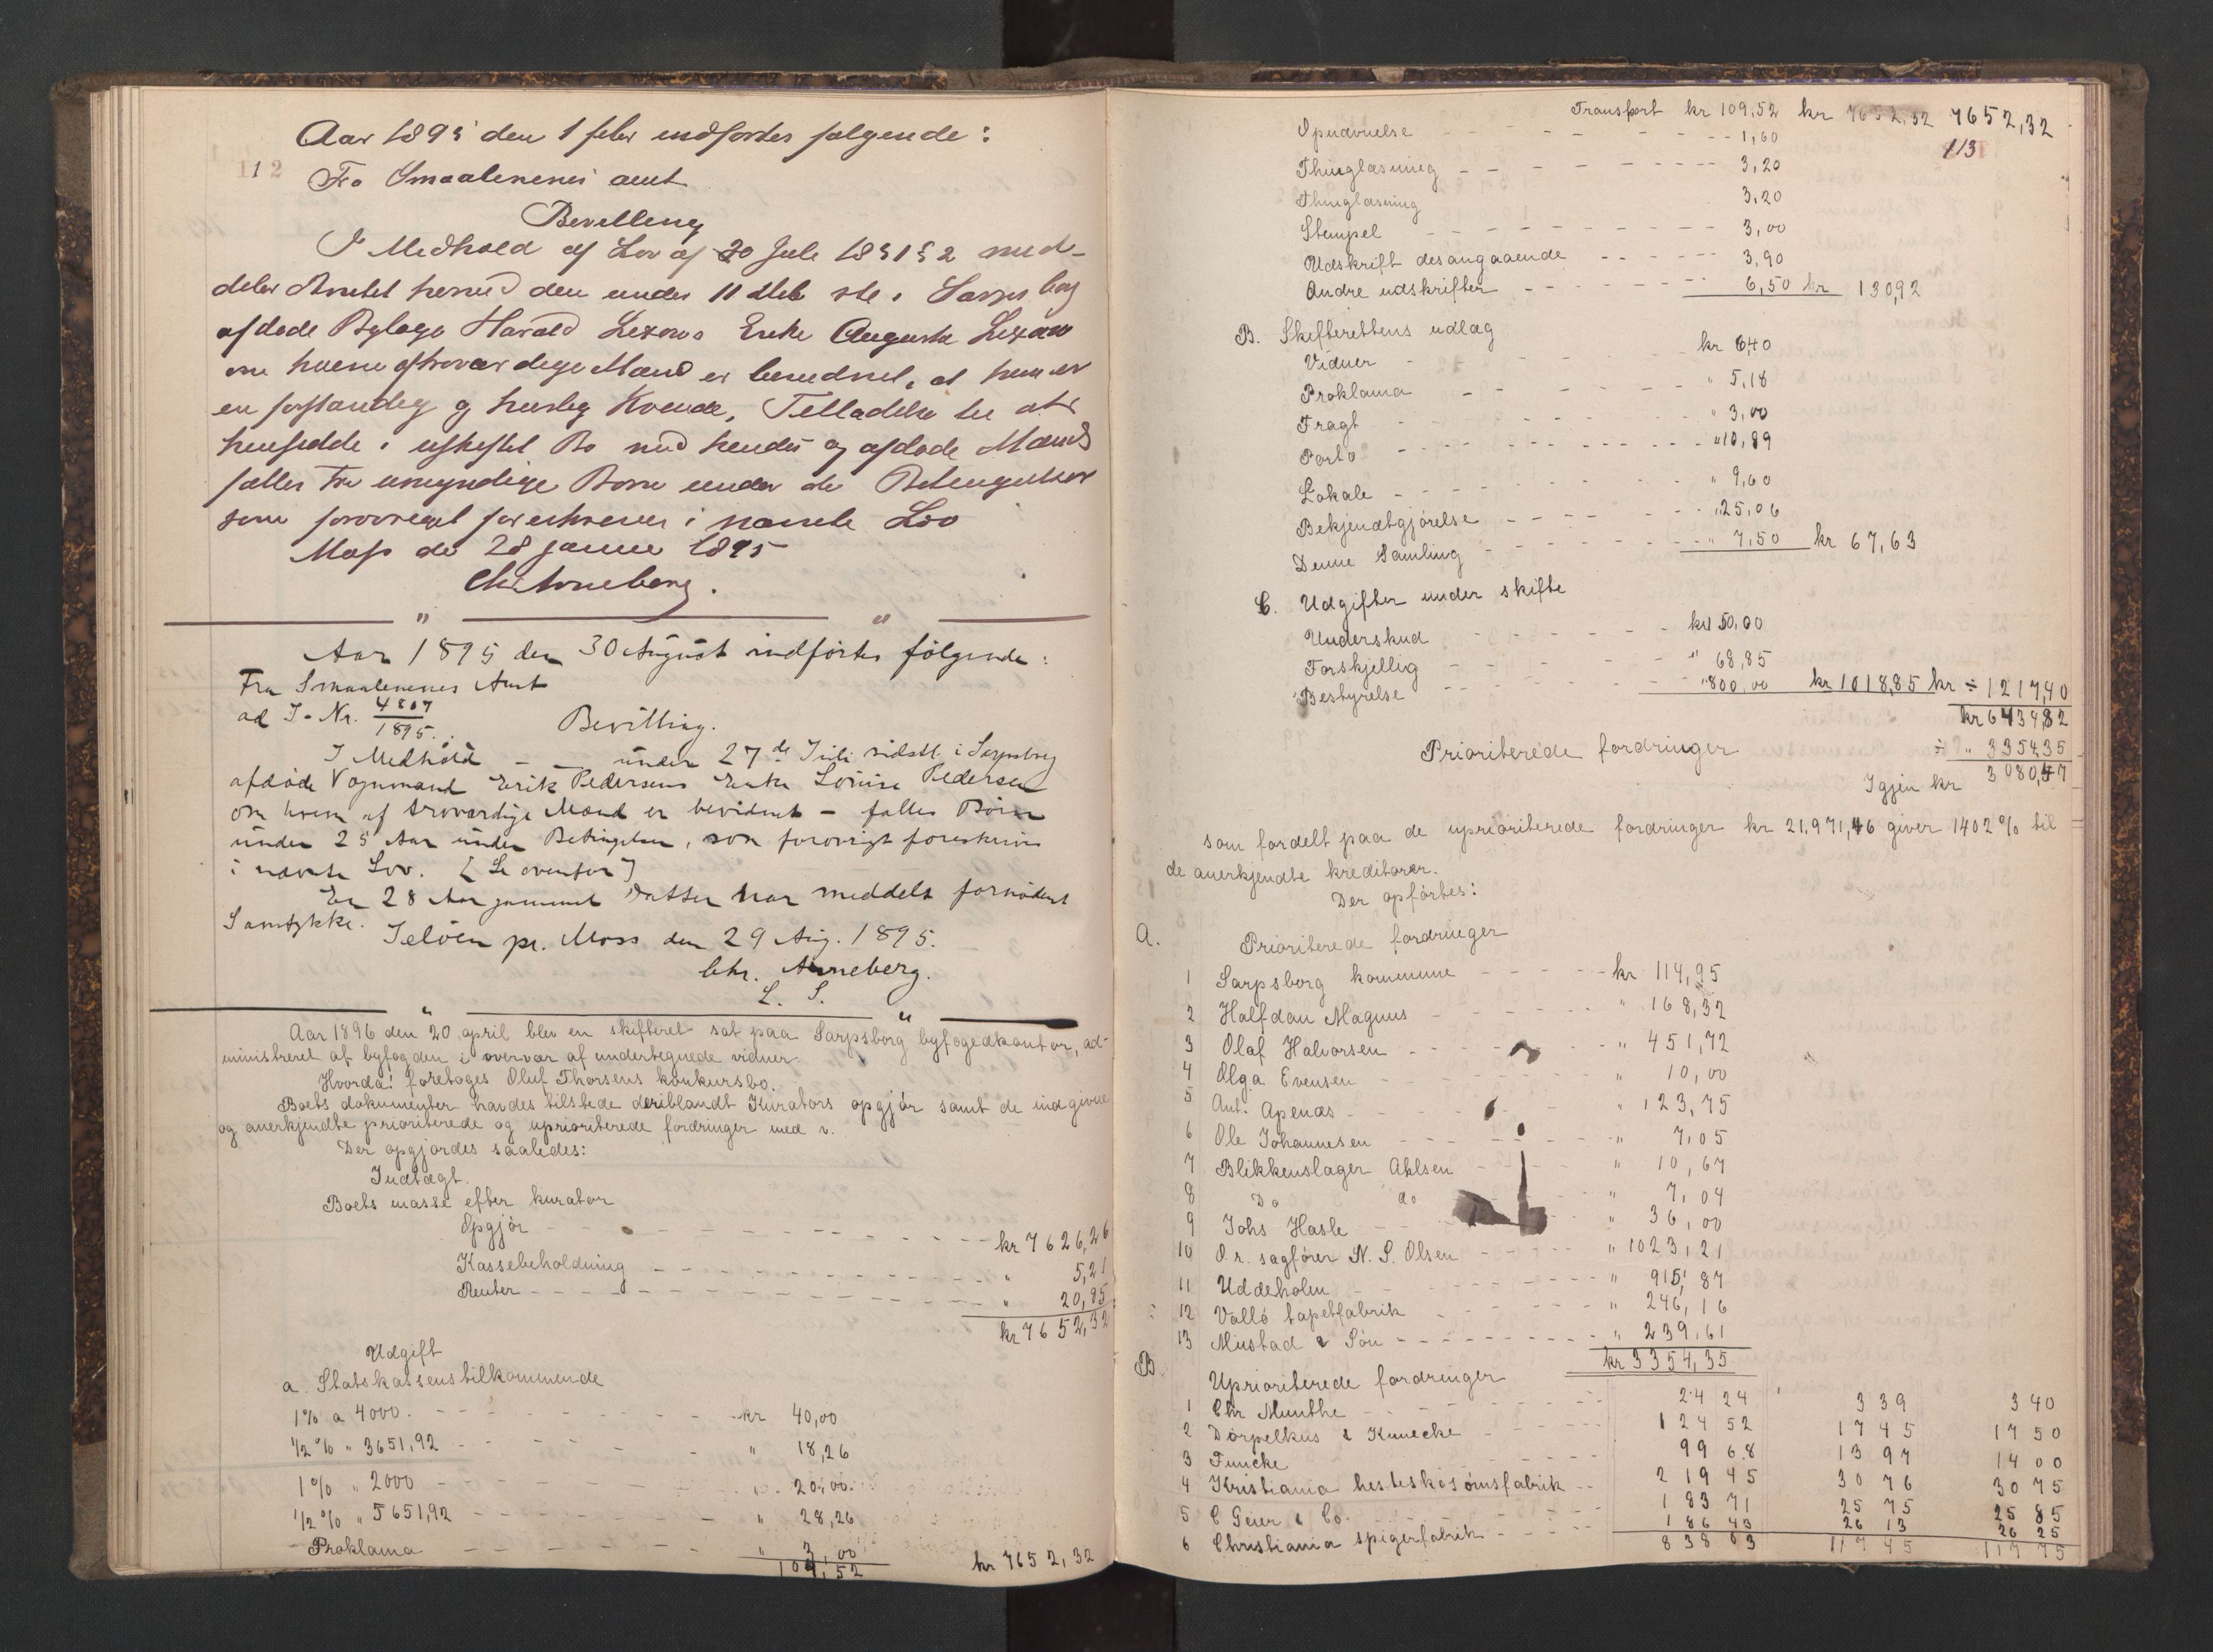 112
Aar 1895 den 1 febr indførtes følgende:
Fra Smaalenenes amt
Bevilling
I Medhold af Lov af 30 Juli 1851 § 2 med-
deler Amtet herved den under 11 dteb ste i Sarpsborg
afdøde Byfoged Harald Lexows Enke Augusta Lexow
om hvem af troværdige Mænd er bevidnet, at hun er
en forstandig og huslig Kvinde, Tilladelse til at
hensidde i uskiftet Bo med hendes og afdøde Mands
fælles tre umyndige Børn under de Betingelser
som forøvrigt foreskrives i nævnte Lov
Moss den 28 januar 1895
Chr Anneberg.
Aar 1895 den 30 August indførtes følgende:
Fra Smaalenenes Amt
ad J. Nr. 4807/1895.
Bevilling.
I Medhold — — under 27de Juli sidstl. i Sarpsborg
afdøde Vognmand Erik Pedersens Enke Louise Pedersen
om hvem af troværdige Mænd er bevidnet — fælles Børn
under 25 Aar under Betingelser, som forøvrigt foreskrives
i nævnte Lov. [Se ovenfor]
En 28 Aar gammel Datter har meddelt fornødent
Samtykke.
Jeløen pr. Moss den 29 Aug. 1895.
Chr. Anneberg.
L. S.
Aar 1896 den 20 april blev en skifteret sat paa Sarpsborg byfogedkontor, ad-
ministreret af byfogden i overvær af undertegnede vidner.
Hvorda: foretoges Oluf Thorsens konkursbo.
Boets dokumenter havdes tilstede deriblandt Kurators opgjør samt de indgivne
og anerkjendte prioriterede og uprioriterede fordringer med v.
Der opgjordes saaledes:
Indtægt.
Boets masse efter kurator
Opgjør - - - kr 7626,26
Kassebeholdning - - - " 5,21
Renter - - - " 20,85
kr 7652,32
Udgift
a. Statskassens tilkommende
1% a 4000. - - - kr 40,00
1/2 % " 3651,92 - - - " 18,26
1% " 2000 - - - " 20,00.
1/2 % " 5651,92 - - - " 28,26
Proklama - - - " 3,00
109,52 kr 7652,32
Transport kr 109,52 kr 7652,32 7652,32
113
- - - 1,60
Thinglæsning - - - 3,20
Thinglæsning 3,20
Stempel - - - 3,00
Udskrift desangaaende - - - 3,90
Andre udskrifter - - - 6,50 kr 130,92
B. Skifterettens udlæg
Vidner - - - kr 6,40
Proklama - - - " 5,18
Fragt - - - " 3,00
Porto - - - " 10,89
Lokale - - - " 9,60
Bekjendtgjørelse - - - " 25,06
Denne samling - - - " 7,50 kr 67,63
C. Udgifter under skifte
Underskud - - - kr 150,00
Forskjellig - - - " 68,85
Bestyrelse - - - " 800,00 kr 1018,85 kr ÷ 1217,40
kr 6434,82
Prioriterede fordringer ÷ " 3354,35
Igjen kr 3080,47
som fordelt paa de uprioriterede fordringer kr 21,971,46 giver 1402 % til
de anerkjendte kreditorer.
Der opførtes:
A. Prioriterede fordringer
1 Sarpsborg kommune - - - kr 114,95
2 Halfdan Magnus - - - " 168,32
3 Olaf Halvorsen - - - " 451,72
4 Olga Evensen - - - " 10,00
5 Ant. Apenæs - - - " 123,75
6 Ole Johannesen - - - " 7,05
7 Blikkenslager Ahlsen - - - " 10,67
8 Do do " 7,04
9 Johs Hasle - - - " 36,00
10 O.r. sagfører N. S. Olsen - - - " 1023,21
11 Uddeholm - - - " 915,87
12 Vallø tapetfabrik - - - " 246,16
13 Mustad & Søn - - - " 239,61
kr 3354,35
B. Uprioriterede fordringer
1 Chr Munthe - - - 24 24 3 39 3 40
2 Dörpelkus & Kunecke - - - 124 52 17 45 17 50
3 Funcke 99 68 13 97 14 00
4 Kristiania hesteskosømsfabrik - - 219 45 30 76 30 75
5 C Geier & Co. - - - 183 71 25 75 25 85
6 Christiania spigerfabrik - - - 186 43 26 13 26 25
838 03 117 45 117 75